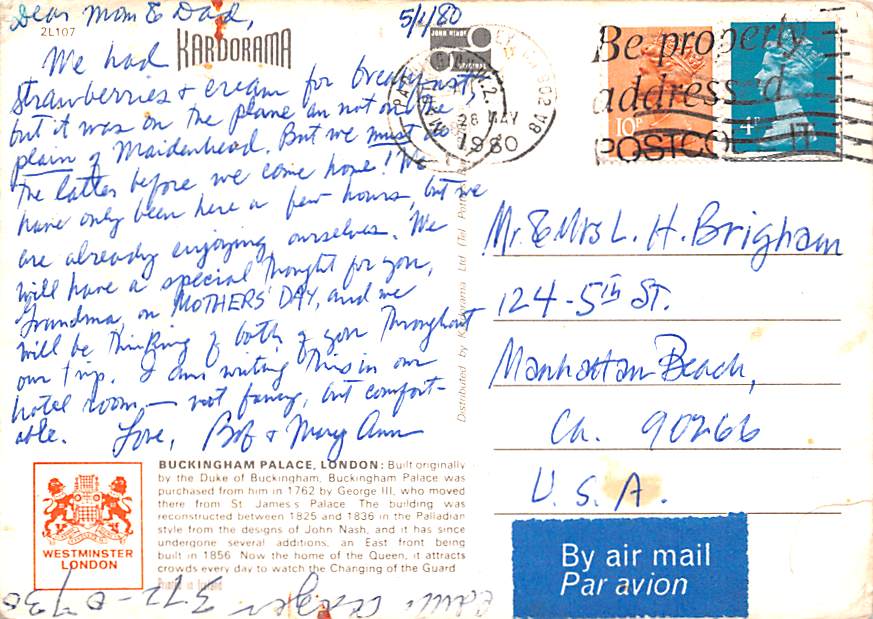 Dear Mom & Dad,
5/1/80
2L107
KARDORAMA
JOHN HINDE
ORIGINAL
We had
strawberries & cream for breakfast,
but it was on the plane an not on the
plain of Maidenhead. But we must do
the latter before we come home! We
have only been here a few hours, but we
are already enjoying ourselves. We
will have a special thought for you,
Grandma, on MOTHERS' DAY, and we
will be thinking of both of you throughout
our trip. I am writing this in our
hotel room — not fancy, but comfort-
able. Love, Bob & Mary Ann
PADDINGTON W.2.
28 MAY
1980
Be properly
addressed
POSTCO IT
10P
4P
Mr. & Mrs L. H. Brigham
124 - 5th St.
Manhattan Beach,
Ca. 90266
U. S. A.
Distributed by Kardorama Ltd (Tel Potters
WESTMINSTER
LONDON
BUCKINGHAM PALACE, LONDON: Built originally
by the Duke of Buckingham, Buckingham Palace was
purchased from him in 1762 by George III, who moved
there from St James's Palace. The building was
reconstructed between 1825 and 1836 in the Palladian
style from the designs of John Nash, and it has since
undergone several additions, an East front being
built in 1856. Now the home of the Queen, it attracts
crowds every day to watch the Changing of the Guard
Printed in Ireland
By air mail
Par avion
372-0730